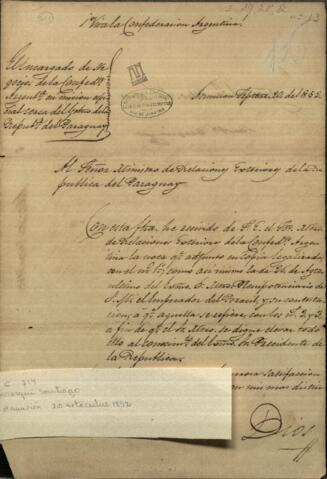 ¡Viva la Confederacion Argentina!
El encargado de Ne
gocios de la Confedn
Argentna en mision espe
cial cerca del Gobno de la
Repubca del Paraguay
Asuncion Septbre 20 de 1852
Al Señor Ministro de Relaciones Exteriores de la Re
publica del Paraguay
Con esta fha he recibido de S. E. el Sor Mtro
de Relaciones Exteriores de la Confedn Argentina
la nota qe adjunto en copia legalizada,
con el no 1, como asi mismo la de 24 de Agto
ultimo del Exmo S. Mtro Plenipotenciario de
S. M. el Emperador del Brasil, y su contesta
cion, a qe aquella se refiere, con los nos 2 y 3
a fin de qe el Sr Mtro se digne elevar todo
ello al conocimto del Exmo Sr Presidente de
la Republica.
satisfaccion
mas distin
Dios
C 714
Santiago
Asunción 20 setiembre 1852